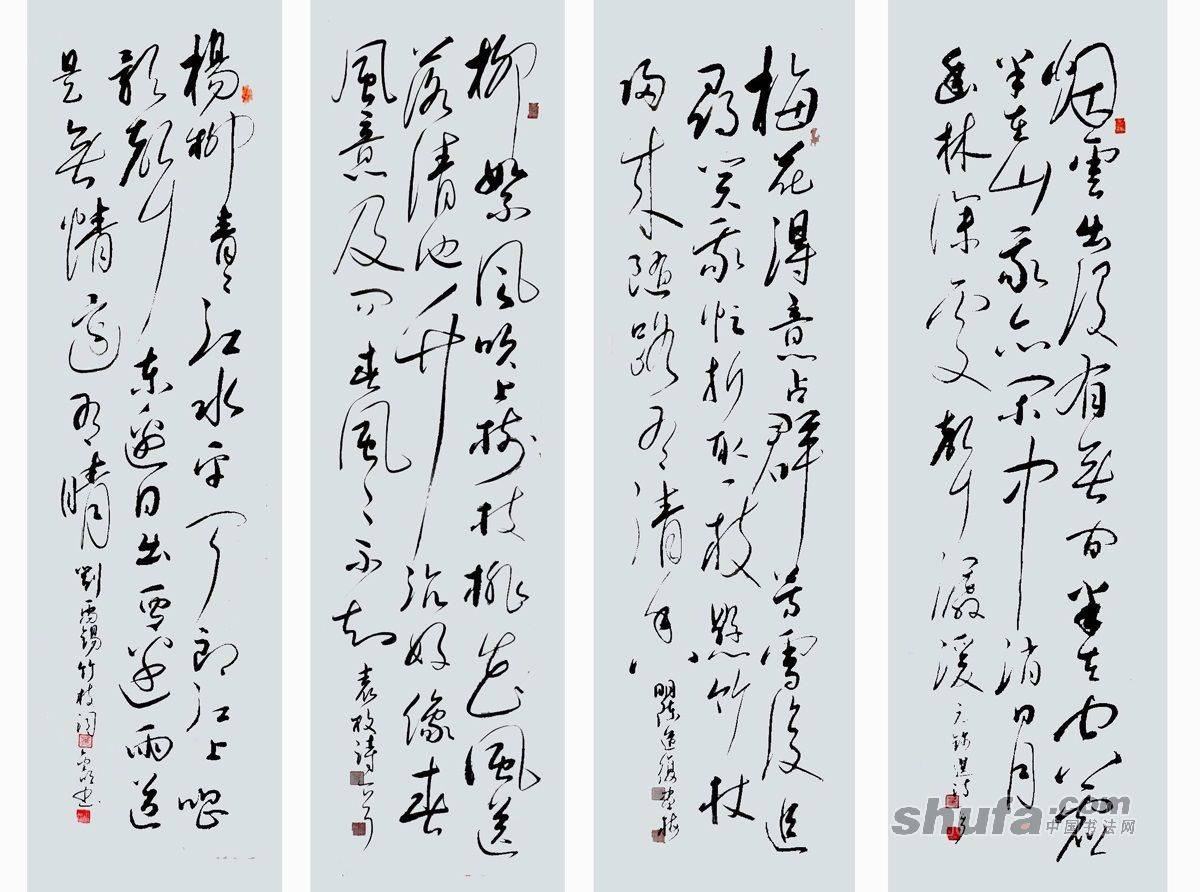 烟雲出没有無間半在空虛
半在山我亦閑中消日月
幽林深處聽潺湲 元錢選詩
梅花得意占群芳雪後追
尋笑我忙折取一枝懸竹杖
歸來隨路有清香 明陳道復畫梅
柳絮風吹上樹枝桃花風送
落清池升沉好像春
風意及問春風々不知 袁枚詩
楊柳青々江水平聞郎江上唱
歌聲東邊日出西邊雨道
是無情還有晴 劉禹錫竹枝詞
shufa.com
中国书法网